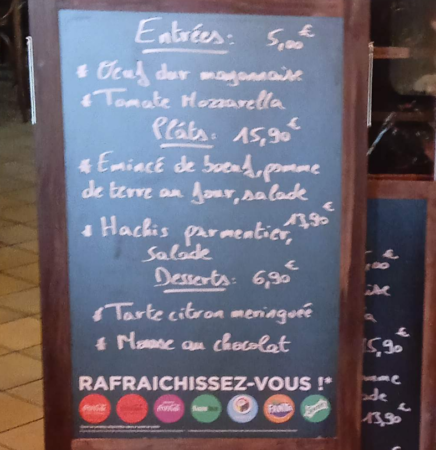 Entrées: 5,00€
* Oeuf dur mayonnaise
* Tomate Mozzarella
Plats: 15,90€
* Emincé de boeuf, pomme
de terre au four, salade
* Hachis parmentier, 13,90€
Salade
Desserts: 6,90€
* Tarte citron meringuée
* Mousse au chocolat
RAFRAICHISSEZ-VOUS !*
Coca-Cola Coca-Cola Coca-Cola Fanta
5,90
13,90